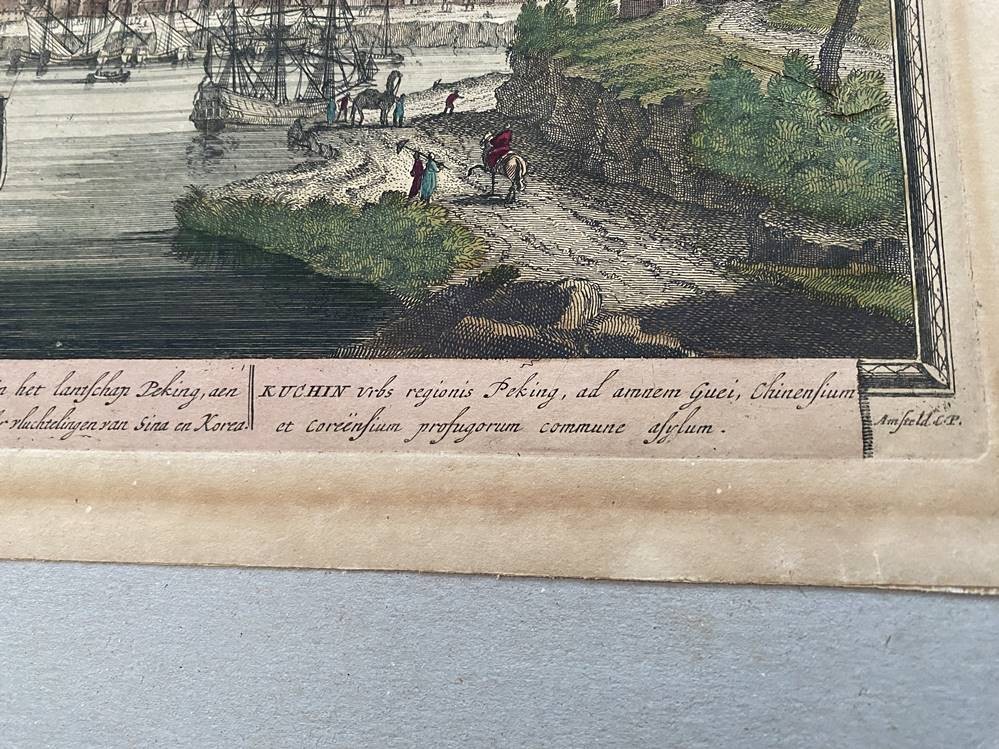 het lantschap Peking, aen
vluchtelingen van Sina en Korea.
KUCHIN Vrbs regionis Peking, ad amnem Guei, Chinensium
et Coreënsium profugorum commune asylum.
Amsteld. C.P.